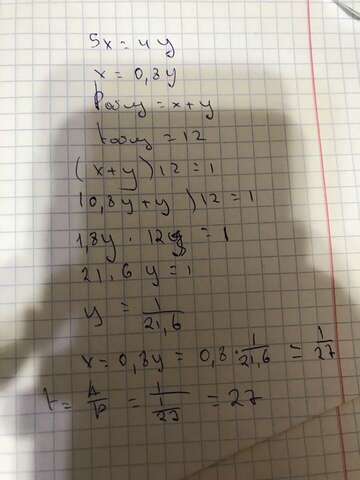 5x = 4y
x = 0,8y
Pобщ = x + y
tобщ = 12
(x+y)12 = 1
(0,8y+y)12 = 1
1,8y · 12 = 1
21,6 y = 1
y = 1/21,6
x = 0,8y = 0,8 · 1/21,6 = 1/27
t = A/P = 1/(1/27) = 27